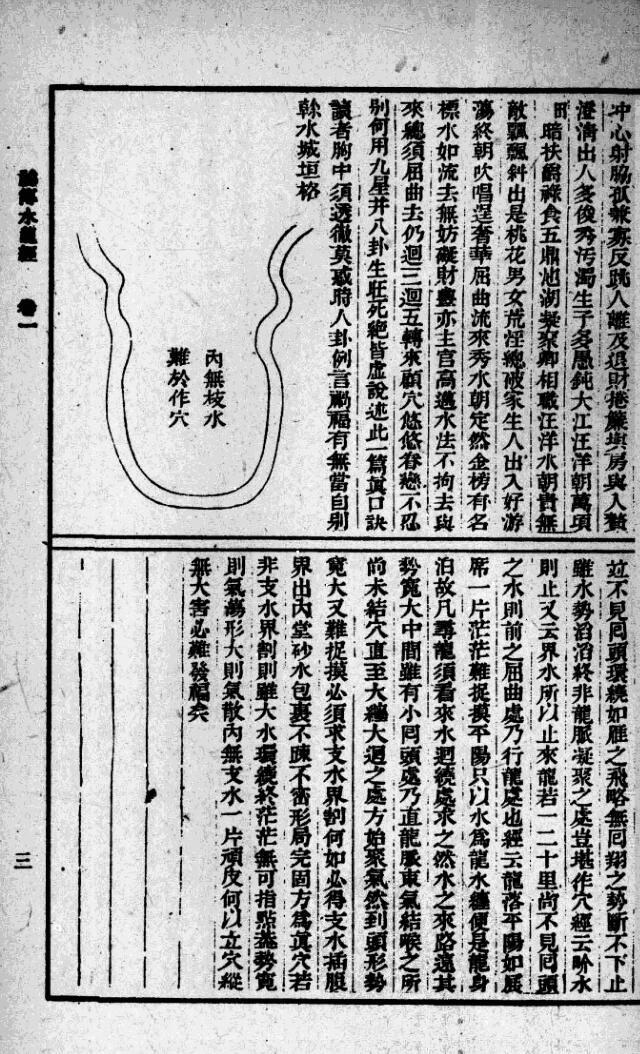 冲心射脇孤兼寡反跳人離及退財捲簾填房與人贅
澄清出人多俊秀汚濁生子多愚鈍大江汪洋朝萬頃
暗扶爵祿食五鼎池湖凝聚卿相職汪洋水朝貴無
敵飄飄斜出是桃花男女荒淫總破家生人出入好游
蕩終朝吹唱逞奢華屈曲流來秀水朝定然金榜有名
標水如流去無妨礙財豐亦主官高邁水法不拘去與
來總須屈曲去仍迴三迴五轉來顧穴悠悠眷戀不忍
別何用九星并八卦生旺死絕皆虛說述此一篇眞口訣
讀者胸中須透徹莫惑時人卦例言禍福有無當自別
榦水城垣格
內無枝水
難於作穴
並不見囘頭環繞如雁之飛略無囘翔之勢斷不下止
雖水勢滔滔終非龍脈凝聚之處豈堪作穴經云界水
則止又云界水所以止來龍若一二十里尚不見囘頭
之水則前之屈曲處乃行龍處也經云龍落平陽如展
席一片茫茫難捉摸平陽只以水爲龍水纏便是龍身
泊故凡尋龍須看來水迴繞處求之然水之來路遠其
勢寬大中間雖有小囘頭處乃直龍脈束氣結喉之所
尚未結穴直至大纏大迴之處方始聚氣然到頭形勢
寬大又難捉摸必須求支水界割何如必得支水插腹
界出內堂砂水包裹不疎不密形局完固方爲眞穴若
非支水界割則雖大水環繞終茫茫無可指點蓋勢寬
則氣蕩形大則氣散內無支水一片頑皮何以立穴縱
無大害必難發福矣
水龍經
卷一
三